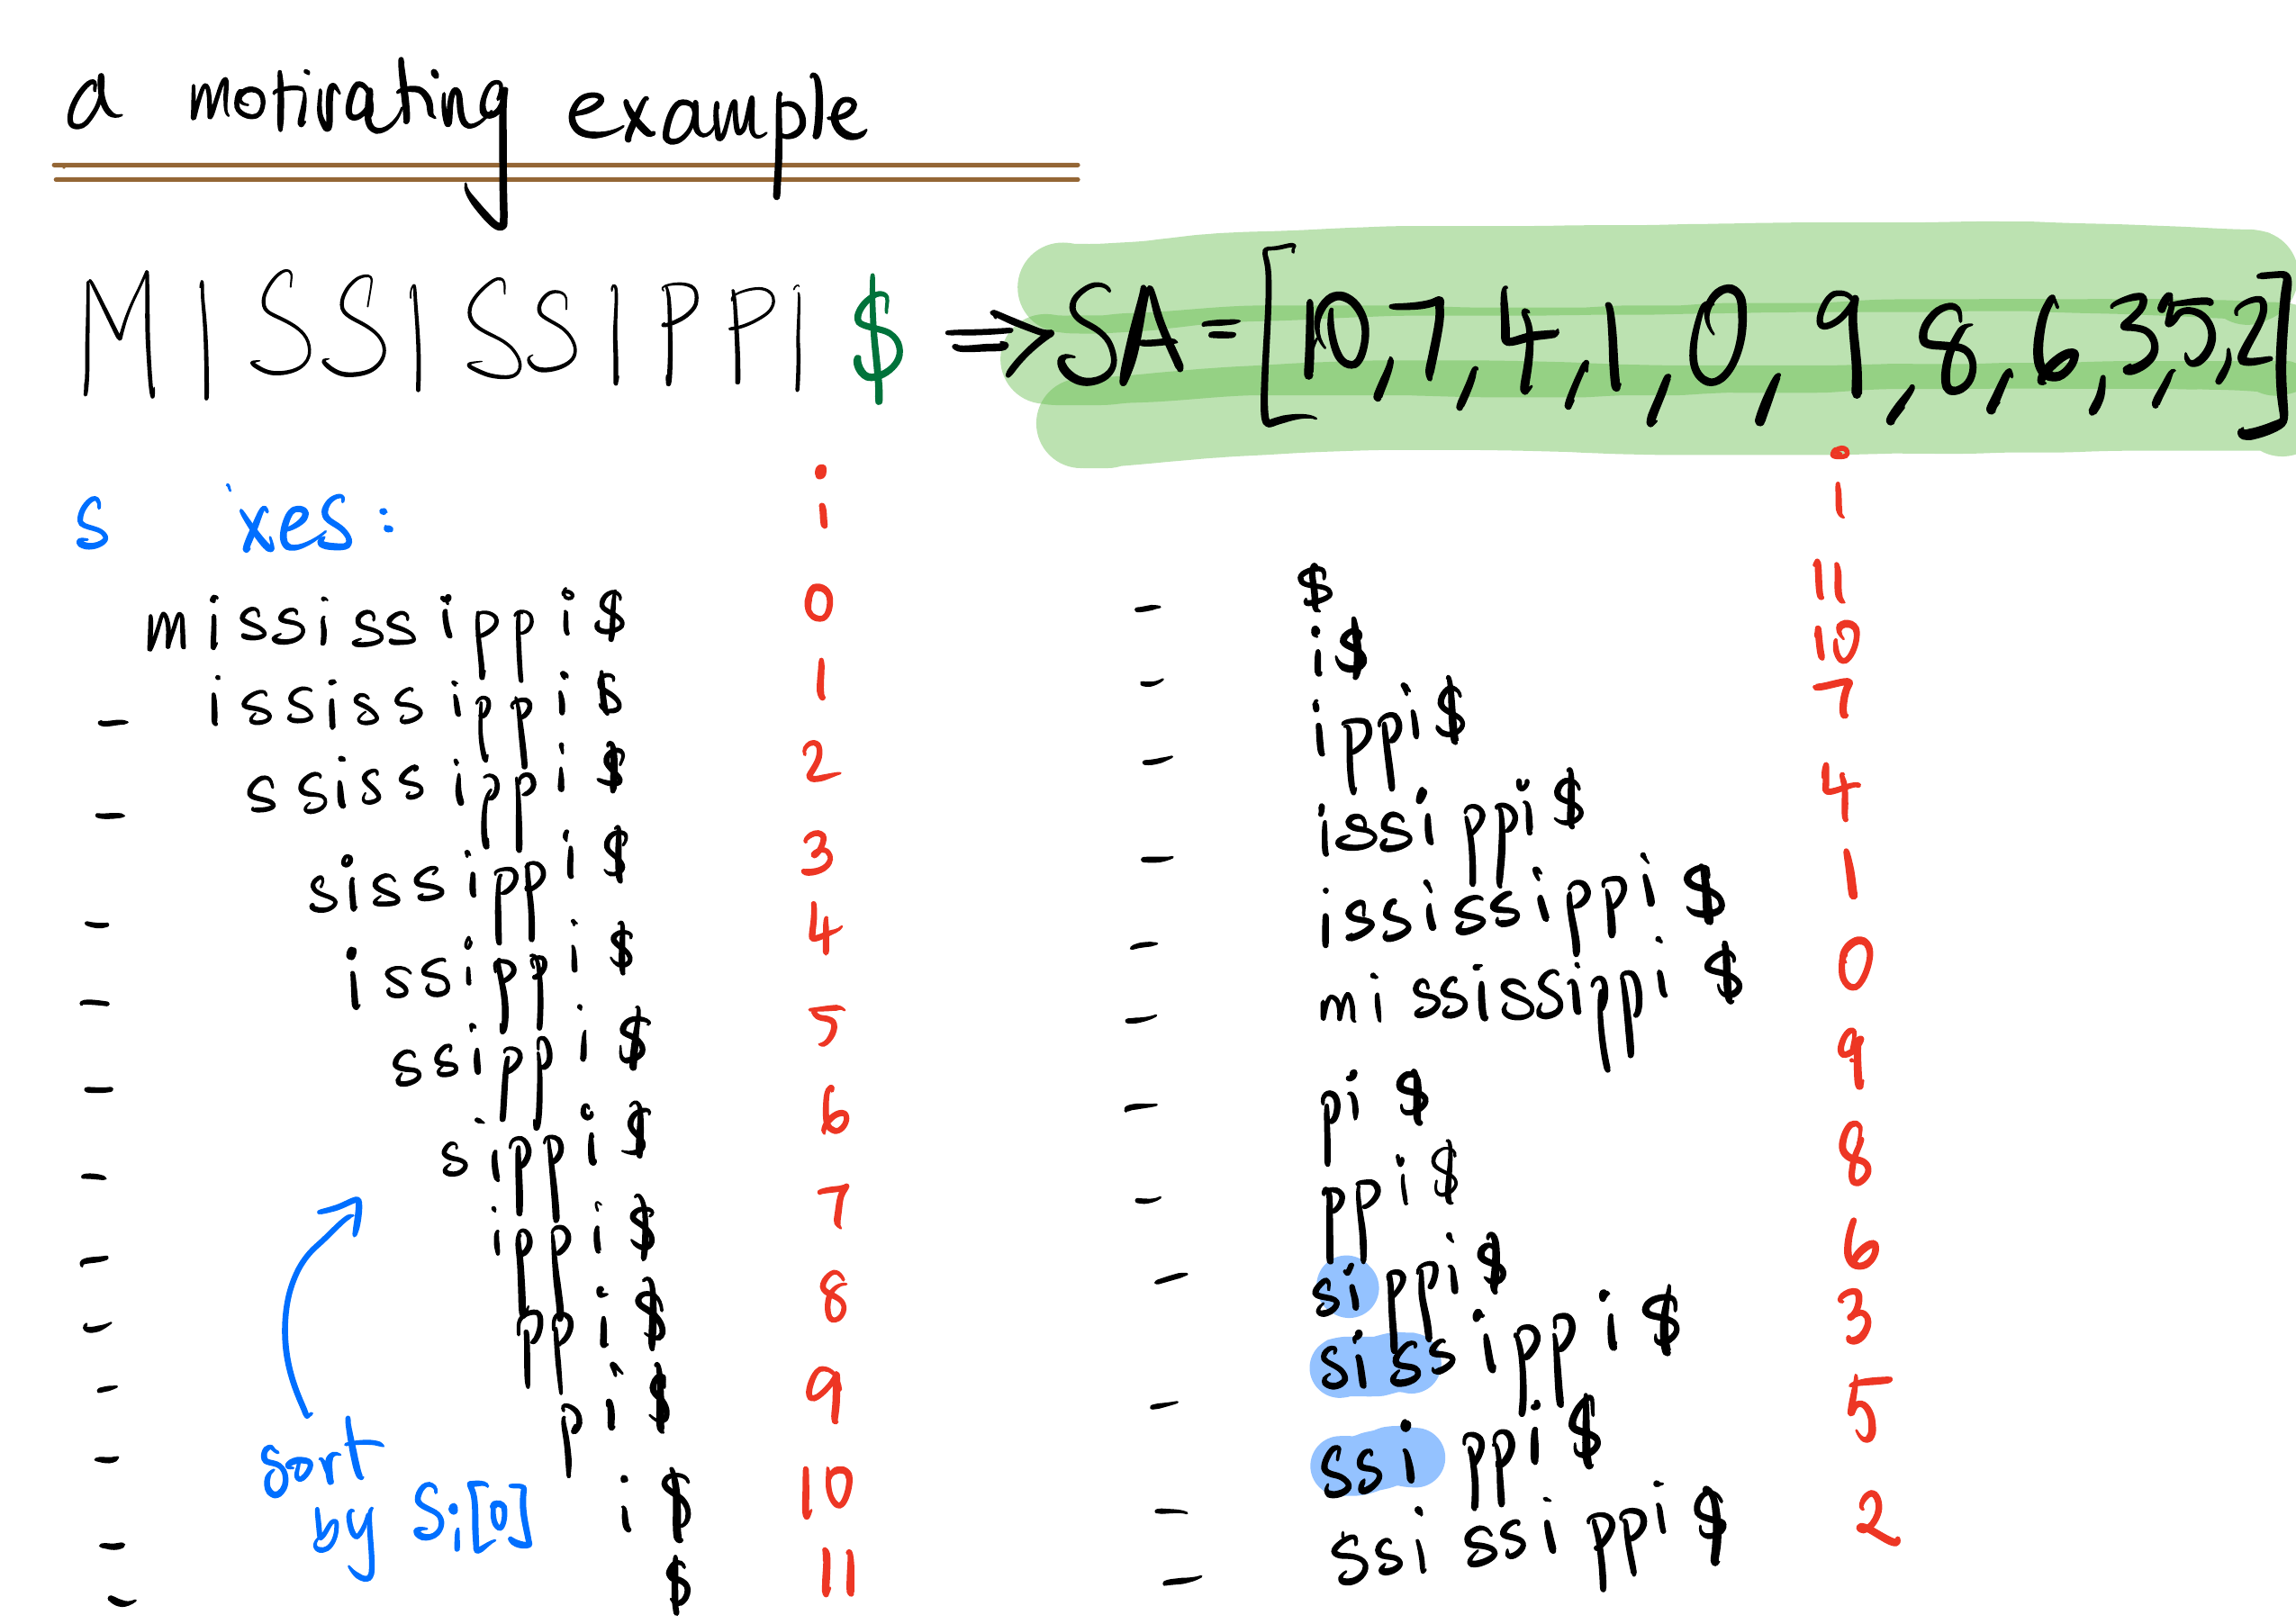 a motivating example
MISSISSIPPI$ ⇒ SA = [10,7,4,1,0,9,8,6,3,5,2]
s xes:
i
mississippi$ 0
- ississippi$ 1
- ssissippi$ 2
- sissippi$ 3
- issippi$ 4
- ssippi$ 5
- sippi$ 6
- ippi$ 7
- ppi$ 8
- pi$ 9
- i$ 10
- $ 11
sort
by Si[0]
i
- $ 11
- i$ 10
- ippi$ 7
- issippi$ 4
- ississippi$ 1
- mississippi$ 0
- pi$ 9
- ppi$ 8
- sippi$ 6
sissippi$ 3
- ssippi$ 5
- ssissippi$ 2